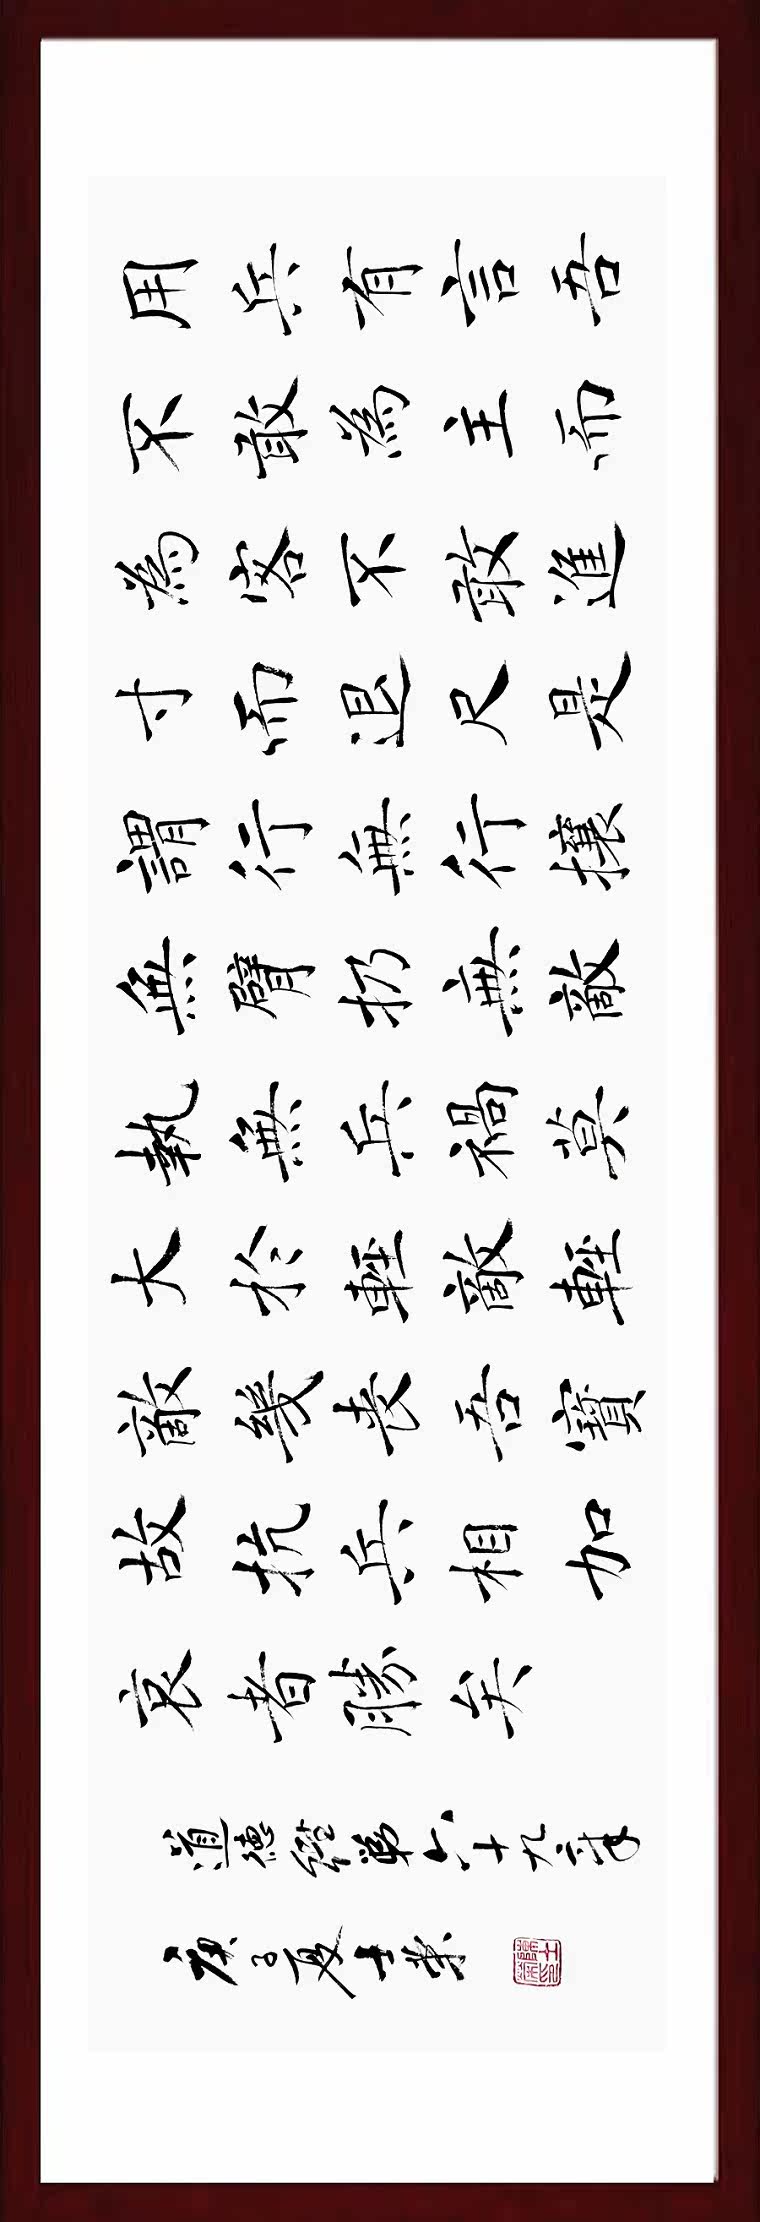 用兵有言吾
不敢為主而
為客不敢進
寸而退尺是
謂行無行攘
無臂扔無敵
執無兵禍莫
大於輕敵輕
敵幾喪吾寶
故抗兵相加
哀者勝矣
道德經第六十九章
庚子夏士